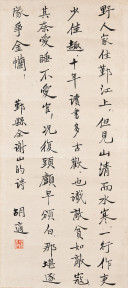 野人家住鄞江上，但見山清而水寒。一行作吏
少佳趣，十年讀書多古歡。也識敵貧如敵寇，
其奈愛睡不愛官。況復頭顱早頒白，那堪逐
隊爭金襴！
鄞縣全謝山的詩
胡適